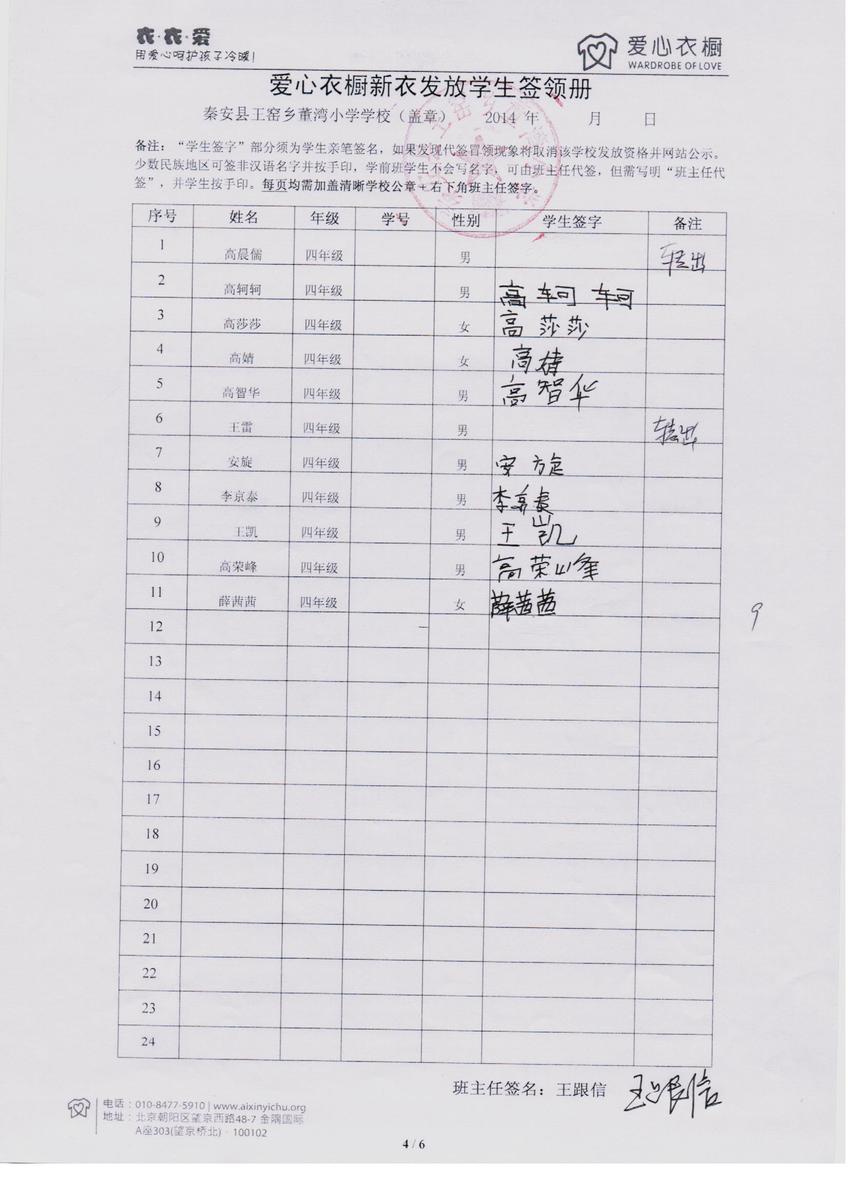 衣·衣·爱
用爱心呵护孩子冷暖!
爱心衣橱
WARDROBE OF LOVE
爱心衣橱新衣发放学生签领册
秦安县王窑乡董湾小学学校（盖章） 2014 年 月 日
备注：“学生签字”部分须为学生亲笔签名，如果发现代签冒领现象将取消该学校发放资格并网站公示。
少数民族地区可签非汉语名字并按手印，学前班学生不会写名字，可由班主任代签，但需写明“班主任代
签”，并学生按手印。每页均需加盖清晰学校公章+右下角班主任签字。
序号 姓名 年级 学号 性别 学生签字 备注
1 高晨儒 四年级 男 转出
2 高轲轲 四年级 男 高轲轲
3 高莎莎 四年级 女 高莎莎
4 高婧 四年级 女 高婧
5 高智华 四年级 男 高智华
6 王雷 四年级 男 转出
7 安旋 四年级 男 安旋
8 李京泰 四年级 男 李京泰
9 王凯 四年级 男 王凯
10 高荣峰 四年级 男 高荣峰
11 薛茜茜 四年级 女 薛茜茜
12
9
13
14
15
16
17
18
19
20
21
22
23
24
班主任签名：王跟信 王跟信
电话：010-8477-5910 | www.aixinyichu.org
地址：北京朝阳区望京西路48-7 金隅国际
A座303(望京桥北)·100102
4 / 6